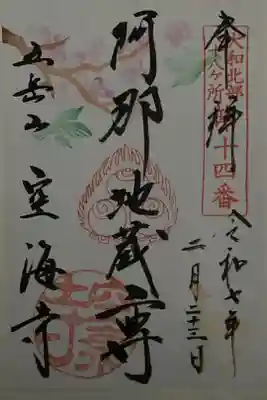 奉拝
大和北部
八十八ヶ所第十四番
令和七年
二月二十三日
阿那地蔵尊
五岳山 空海寺